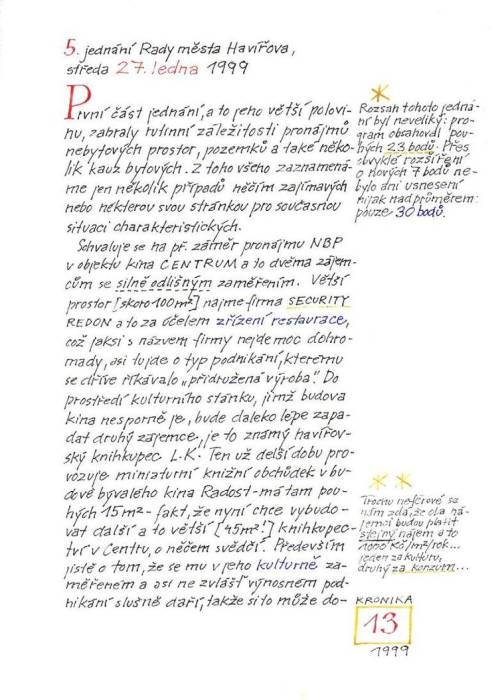 5. jednání Rady města Havířova,
středa 27. ledna 1999
První část jednání, a to jeho větší polovi-
nu, zabraly rutinní záležitosti pronájmů
nebytových prostor, pozemků a také něko-
lik kauz bytových. Z toho všeho zaznamená-
me jen několik případů něčím zajímavých
nebo některou svou stránkou pro současnou
situaci charakteristických.
Schvaluje se na př. záměr pronájmu NBP
v objektu kina CENTRUM a to dvěma zájem-
cům se silně odlišným zaměřením. Větší
prostor [skoro 100m²] najme firma SECURITY
REDON a to za účelem zřízení restaurace,
což jaksi s názvem firmy nejde moc dohro-
mady, asi tu jde o typ podnikání, kterému
se dříve říkávalo „přidružená výroba". Do
prostředí kulturního stánku, jímž budova
kina nesporně je, bude daleko lépe zapa-
dat druhý zájemce, je to známý havířov-
ský knihkupec L.K. Ten už delší dobu pro-
vozuje miniaturní knižní obchůdek v bu-
dově bývalého kina Radost - má tam pou-
hých 15m² - fakt, že nyní chce vybudo-
vat další a to větší [45m²!] knihkupec-
tví v Centru, o něčem svědčí. Především
jistě o tom, že se mu v jeho kulturně za-
měřeném a asi ne zvlášť výnosném pod-
nikání slušně daří, takže si to může do-
*
Rozsah tohoto jedná-
ní byl neveliký: pro-
gram obsahoval pou-
hých 23 bodů. Přes
obvyklé rozšíření
o nových 7 bodů ne-
bylo ani usnesení
nijak nad průměrem:
pouze 30 bodů.
* *
Trochu neférové se
nám zdá, že oba ná-
jemci budou platit
stejný nájem a to
1000 Kč/m²/rok...
jeden za kulturu,
druhý za konzum...
KRONIKA
13
1999